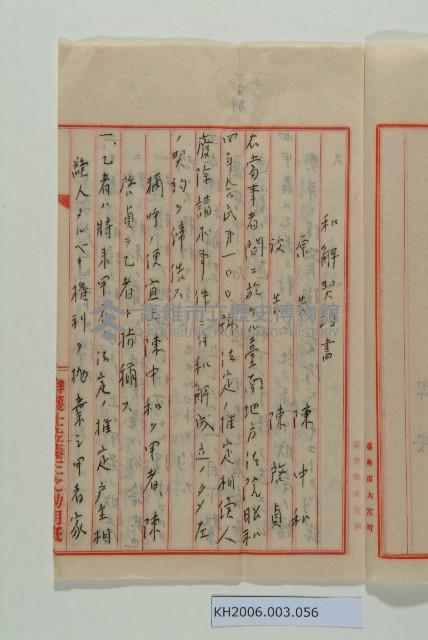 和解契約書
原告 陳中和
被告 陳啓貞
右當事者間ニ於ケル臺南地方法院昭和
四年合民第一〇〇號法定ノ推定相續人
廢除請求事件ニ付和解成立ノタメ左
ノ契約ヲ締結ス
稱呼ノ便宜上陳中和ヲ甲者、陳
啓貞ヲ乙者ト指稱ス
一、乙者ハ將來甲者ノ法定ノ推定戶主相
續人タルベキ權利ヲ抛棄シ甲者家
臺南市大宮町
高雄市立歷史博物館
KH2006.003.056